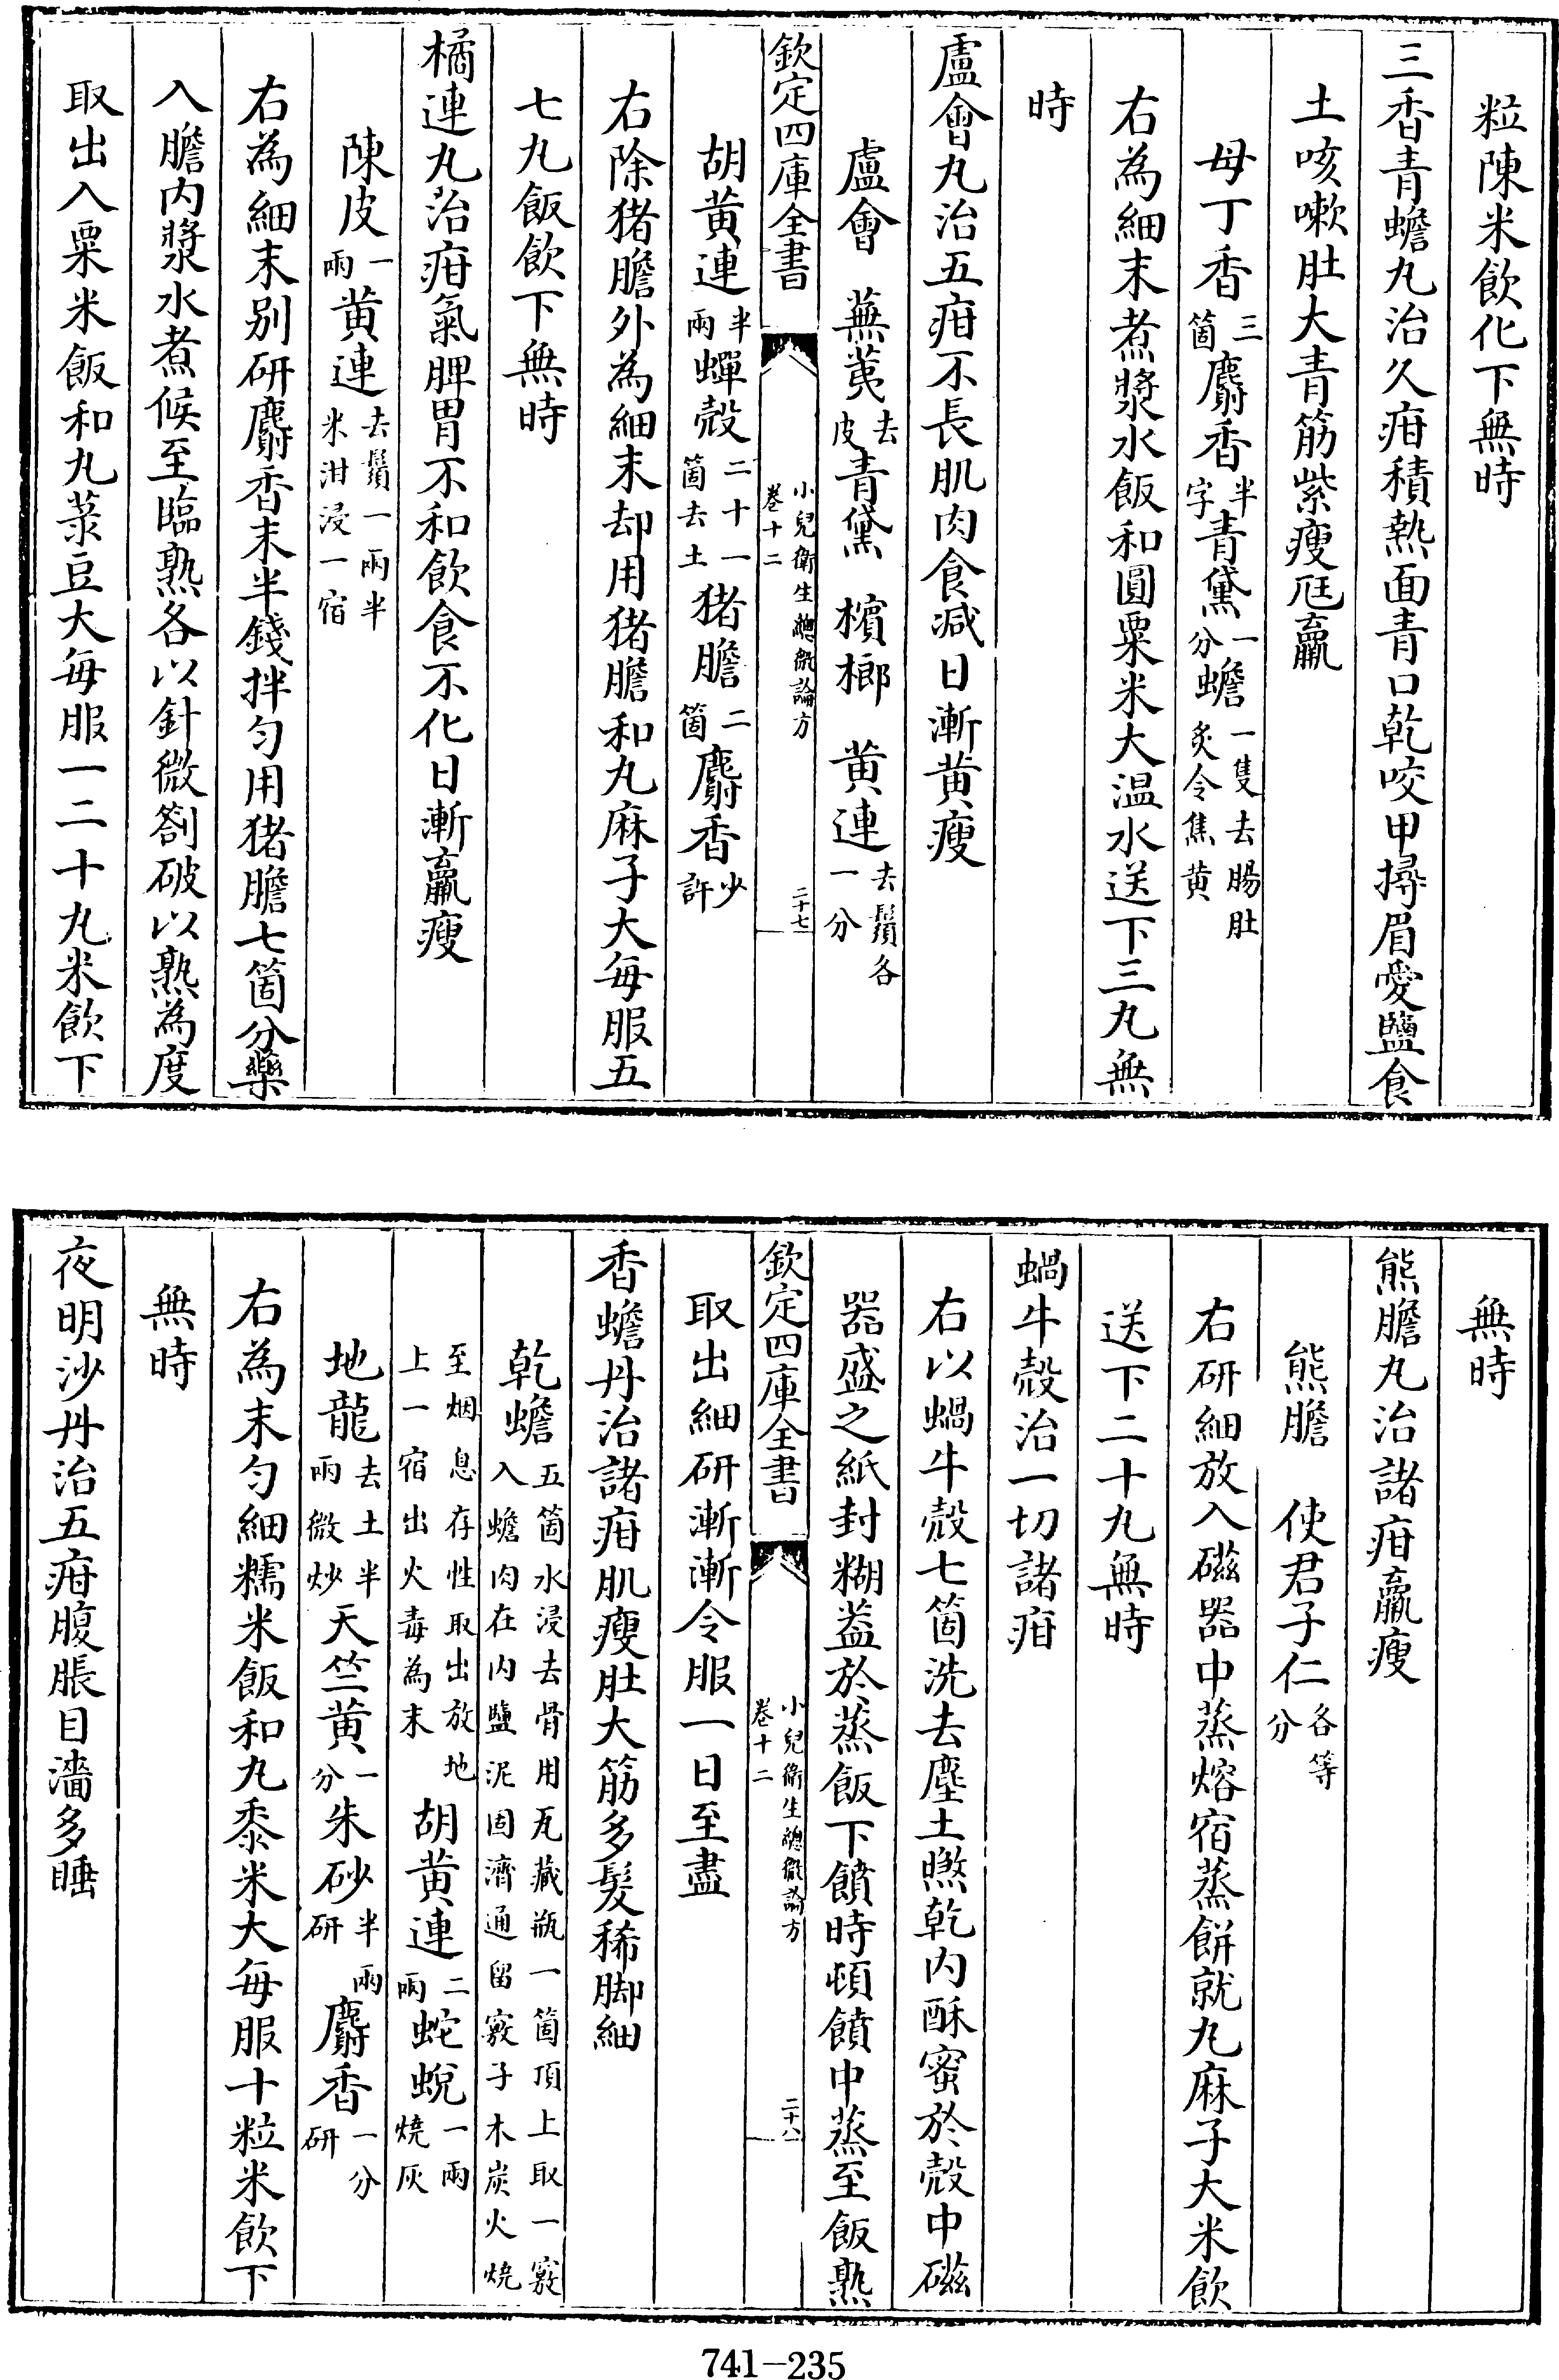 粒陳米飲化下無時
三香青蟾丸治久疳積熱面青口乾咬甲撏眉愛鹽食
土咳嗽肚大青筋紫瘦尫羸
母丁香三箇麝香半字青黛一分蟾一隻去腸肚炙令焦黄
右為細末煮漿水飯和圓粟米大温水送下三丸無
時
盧㑹丸治五疳不長肌肉食减日漸黄瘦
盧㑹 蕪荑去皮青黛 檳榔 黄連去鬚各一分
欽定四庫全書 小兒衛生總微論方 卷十二 二十七
胡黄連半兩蟬殻二十一箇去土猪膽二箇麝香少許
右除猪膽外為細末却用猪膽和丸麻子大每服五
七丸飯飲下無時
橘連丸治疳氣脾胃不和飲食不化日漸羸瘦
陳皮一兩黄連去鬚一兩半米泔浸一宿
右為細末别研麝香末半錢拌匀用猪膽七箇分藥
入膽内漿水煮候至臨熟各以針微劄破以熟為度
取出入粟米飯和丸菉豆大每服一二十丸米飲下
無時
熊膽丸治諸疳羸瘦
熊膽 使君子仁各等分
右研細放入磁器中蒸熔宿蒸餅就丸麻子大米飲
送下二十丸無時
蝸牛殻治一切諸疳
右以蝸牛殻七箇洗去塵土㬠乾内酥蜜於殻中磁
器盛之紙封糊葢於蒸飯下饙時頓饙中蒸至飯熟
欽定四庫全書 小兒衛生總微論方 卷十二 二十八
取出細研漸漸令服一日至盡
香蟾丹治諸疳肌瘦肚大筋多髪稀脚細
乾蟾五箇水浸去骨用瓦藏瓶一箇頂上取一竅入蟾肉在内鹽泥固濟通留竅子木炭火燒
至烟息存性取出放地上一宿出火毒為末胡黄連二兩蛇蜕一兩燒灰
地龍去土半兩微炒天竺黄一分朱砂半兩研麝香一分研
右為末匀細糯米飯和丸黍米大每服十粒米飲下
無時
夜明沙丹治五疳腹脹目濇多睡
741-235